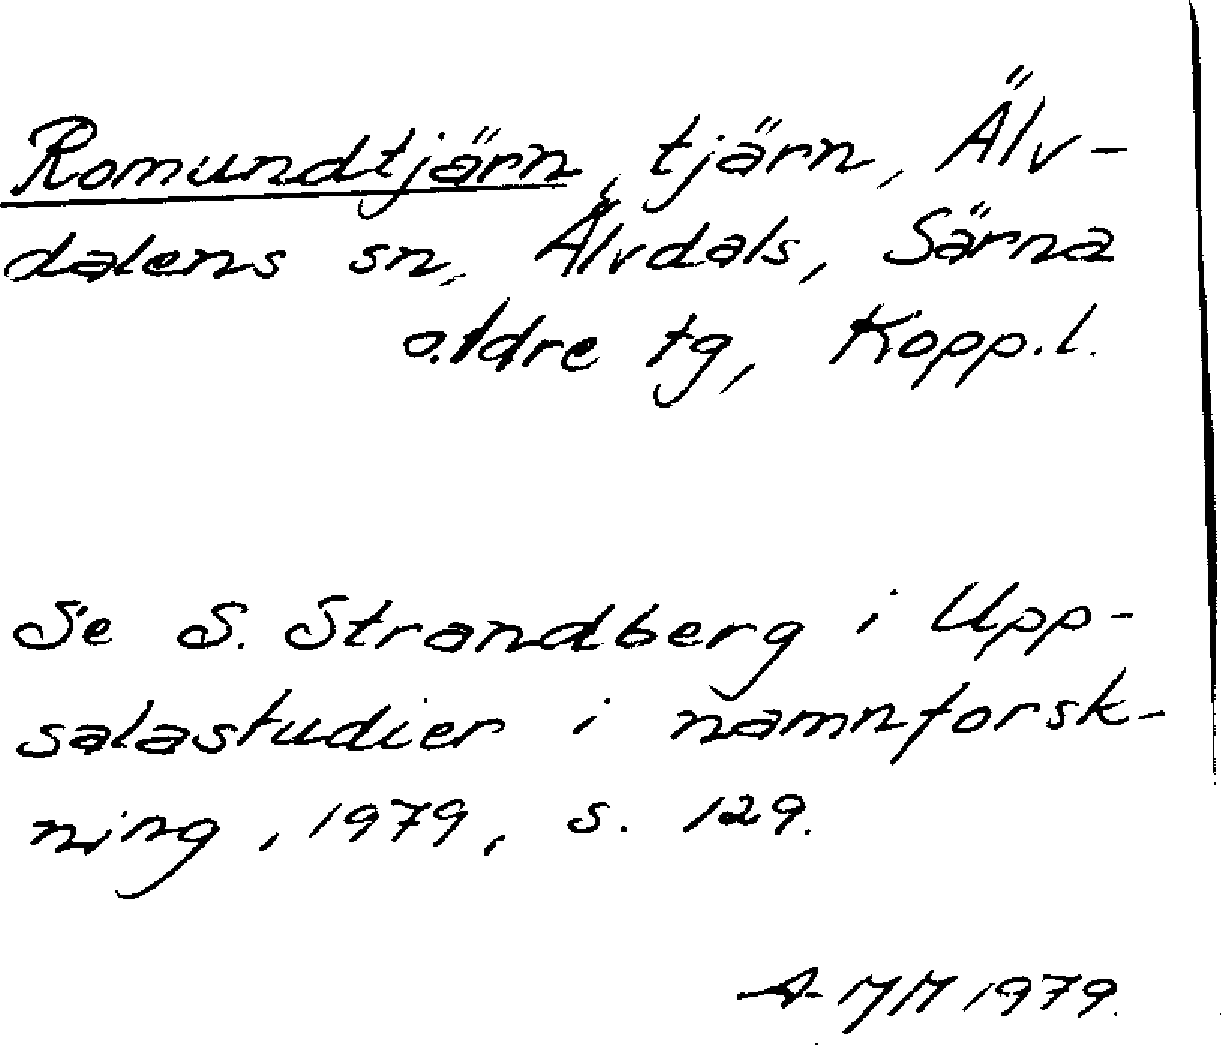 Romundtjärn, tjärn, Älv-
dalens sn, Älvdals, Särna
o. Idre tg, Kopp.l.
Se S. Strandberg i Upp-
salastudier i namnforsk-
ning, 1979, s. 129.
A-MM 1979.